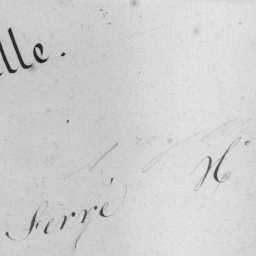 lle.
Ferré H